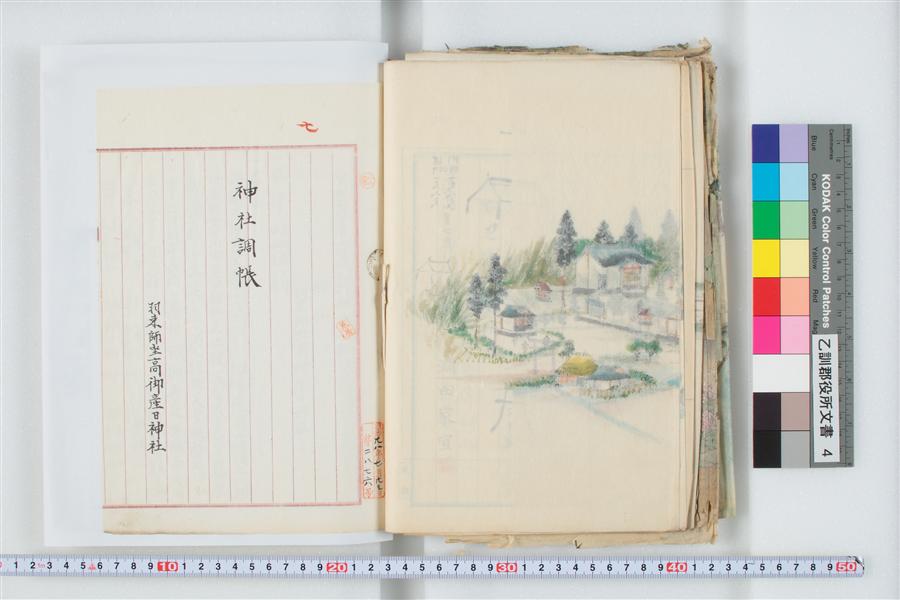 七
神社調帳
羽束師坐高御産日神社
二八七六
KODAK Color Control Patches
Blue
Cyan
Green
Yellow
Red
Mag
Centimetres
Inches
乙訓郡役所文書 4
1 2 3 4 5 6 7 8 9 10 1 2 3 4 5 6 7 8 9 20 1 2 3 4 5 6 7 8 9 30 1 2 3 4 5 6 7 8 9 40 1 2 3 4 5 6 7 8 9 50